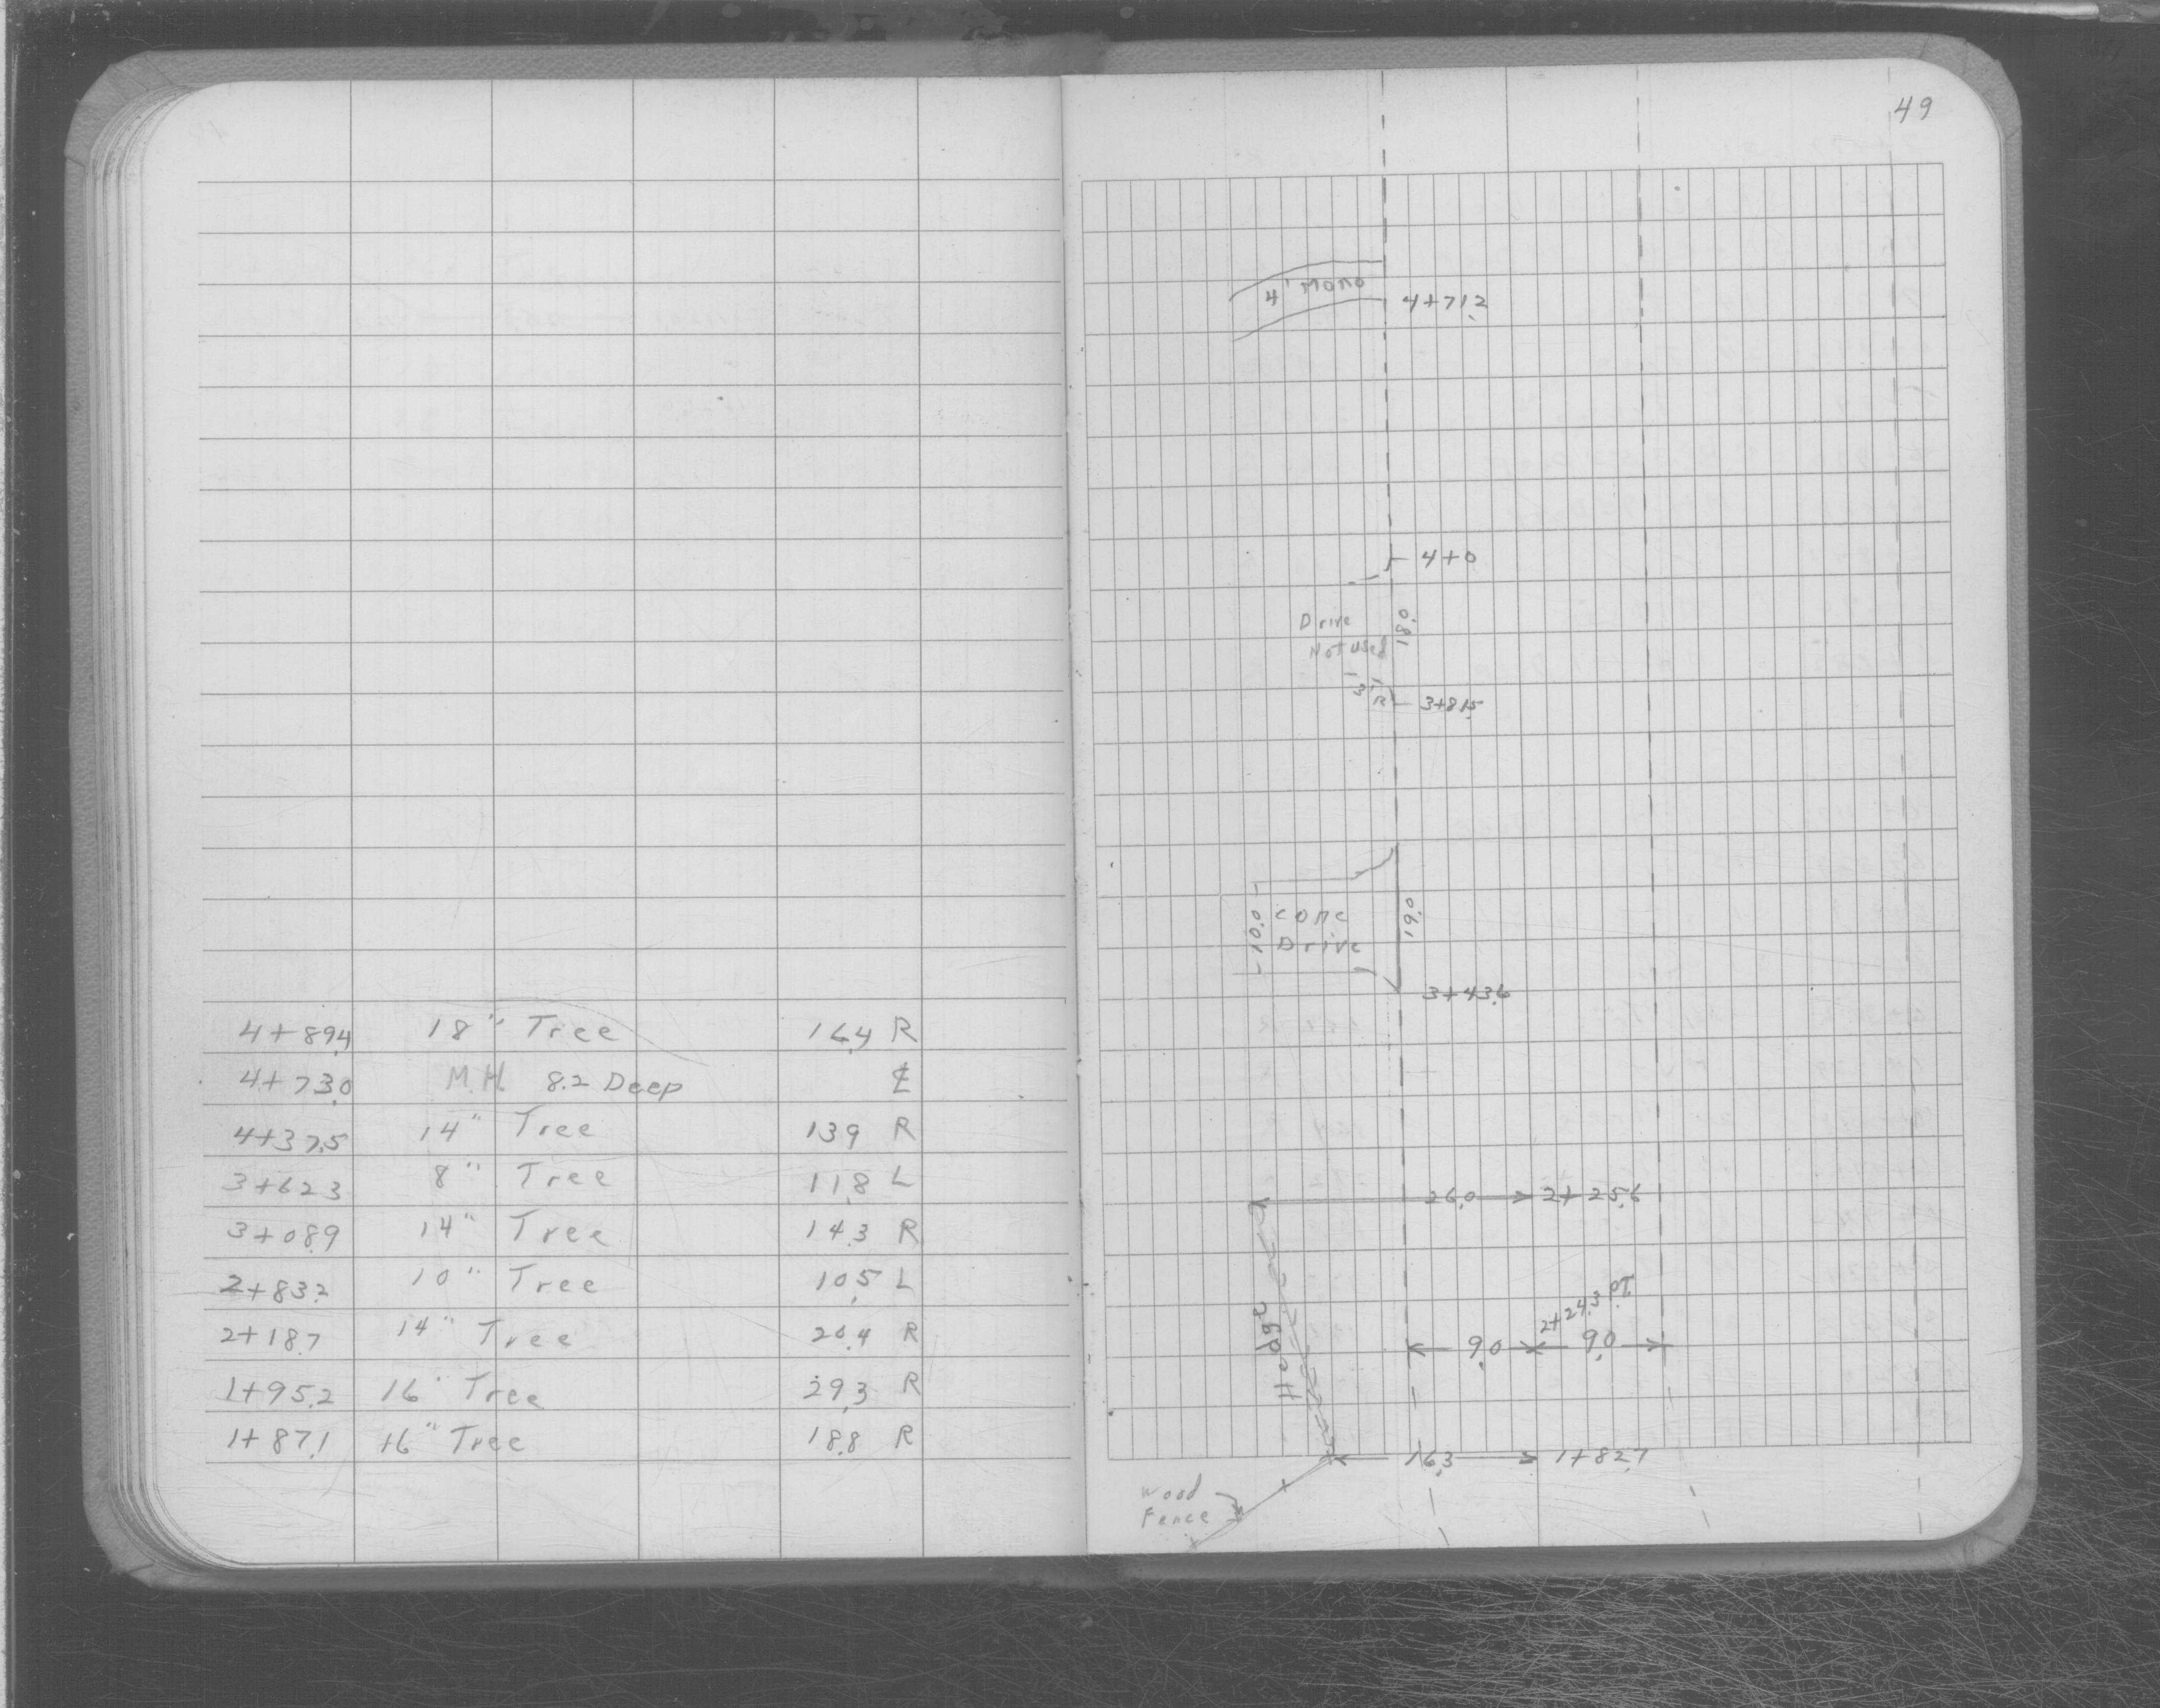 4+89.4 18" Tree 16.4 R
4+73.0 M.H. 8.2 Deep ℄
4+37.5 14" Tree 13.9 R
3+62.3 8" Tree 11.8 L
3+08.9 14" Tree 14.3 R
2+83.2 10" Tree 10.5 L
2+18.7 14" Tree 20.4 R
1+95.2 16" Tree 29.3 R
1+87.1 16" Tree 18.8 R
49
4' Mono 4+71.2
4+0
Drive
Not used
18.0
3'R 3+81.5
10.0
conc
Drive
19.0
3+43.6
26.0 2+25.6
Hedge
2+24.3 PI
9.0 9.0
16.3 1+82.7
Wood
Fence